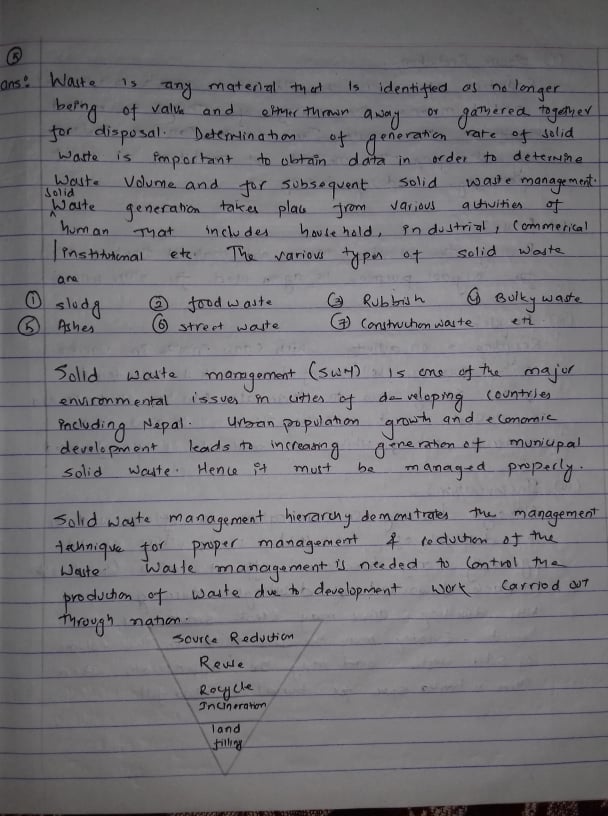 ⑧
ans: Waste is any material that is identified as no longer
being of value and either thrown away or gathered together
for disposal. Determination of generation rate of solid
waste is important to obtain data in order to determine
waste volume and for subsequent solid waste management.
solid
^ waste generation takes place from various activities of
human that includes household, industrial, commerical
institutional etc. The various types of solid waste
are
① sludg ② food waste ③ Rubbish ④ Bulky waste
⑤ Ashes ⑥ street waste ⑦ construction waste etc.
Solid waste management (SWM) is one of the major
environmental issues in cities of developing countries
including Nepal. Urban population growth and economic
development leads to increasing generation of municipal
solid waste. Hence it must be managed properly.
Solid waste management hierarchy demonstrates the management
technique for proper management & reduction of the
waste. Waste management is needed to control the
production of waste due to development work carried out
through nation.
Source Reduction
Reuse
Recycle
Incineration
land
filling